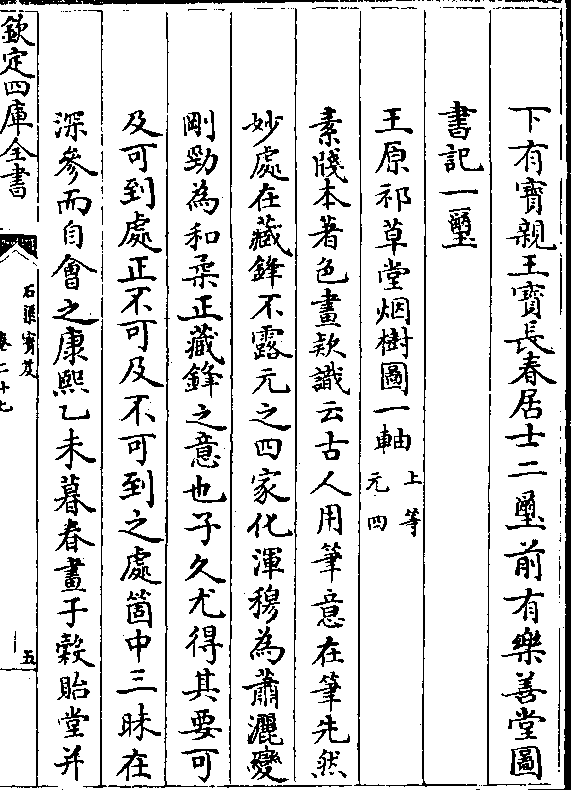 下有寳親王寳長春居士二璽前有樂善堂圖
書記一璽
王原祁草堂烟樹圖一軸 上等
元四
素牋本著色畫款識云古人用筆意在筆先然
妙處在藏鋒不露元之四家化渾穆為蕭灑變
剛勁為和柔正藏鋒之意也子久尤得其要可
及可到處正不可及不可到之處箇中三昧在
深參而自會之康熙乙未暮春畫于榖貽堂并
欽定四庫全書
石渠寳笈
卷二十七
五